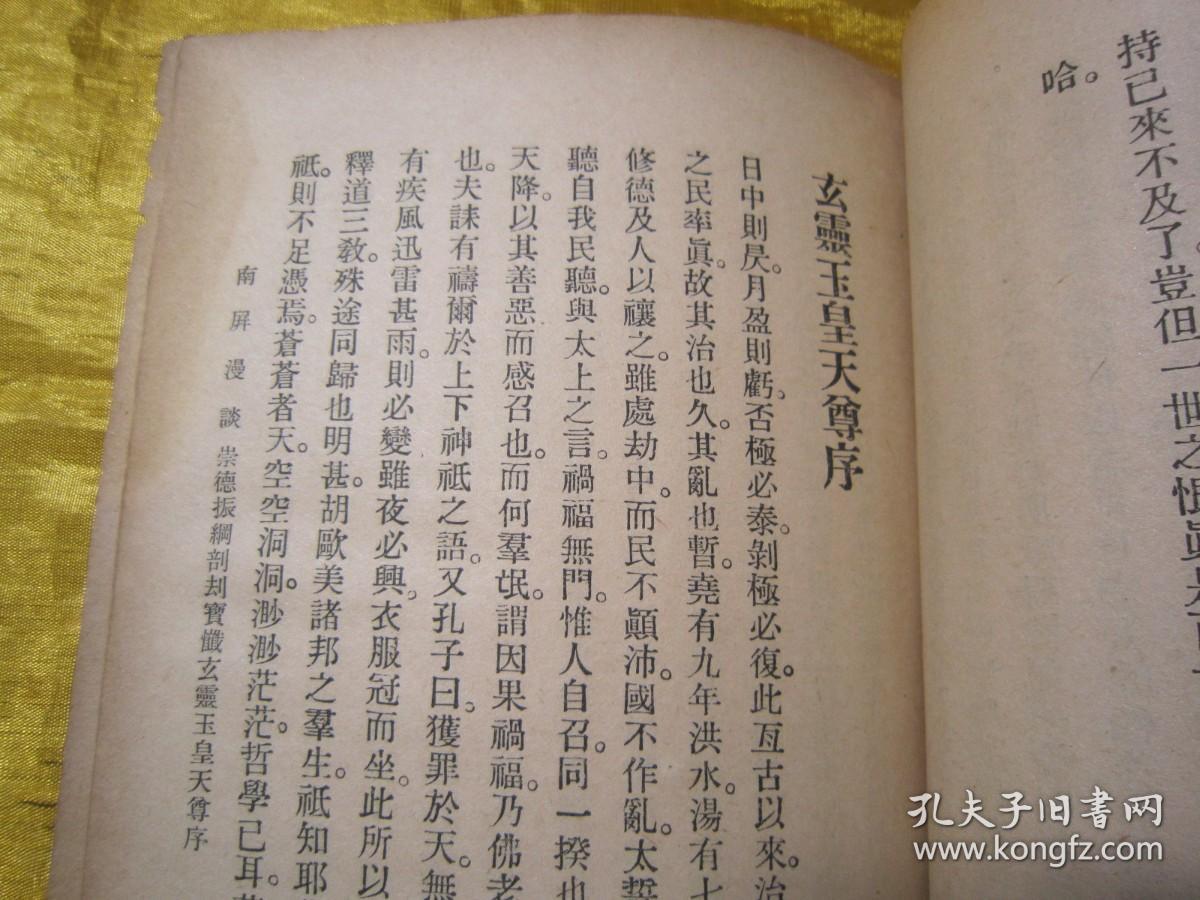 持已來不及了。豈但一世之恨眞
哈。
玄靈玉皇天尊序
日中則昃。月盈則虧。否極必泰。剝極必復。此亙古以來。治
之民率眞。故其治也久。其亂也暫。堯有九年洪水。湯有七
修德及人以禳之。雖處劫中。而民不顚沛。國不作亂。太誓
聽自我民聽。與太上之言。禍福無門。惟人自召。同一揆也
天降。以其善惡而感召也。而何羣氓。謂因果禍福。乃佛老
也。夫誄有禱爾於上下神祇之語。又孔子曰。獲罪於天。無
有疾風迅雷甚雨。則必變雖夜必興。衣服冠而坐。此所以
釋道三敎。殊途同歸也明甚。胡歐美諸邦之羣生。祇知耶
祇。則不足憑焉。蒼蒼者天。空空洞洞。渺渺茫茫。哲學已耳。
南屏漫談 崇德振綱剖刦寶懺玄靈玉皇天尊序
孔夫子旧书网
www.kongfz.com